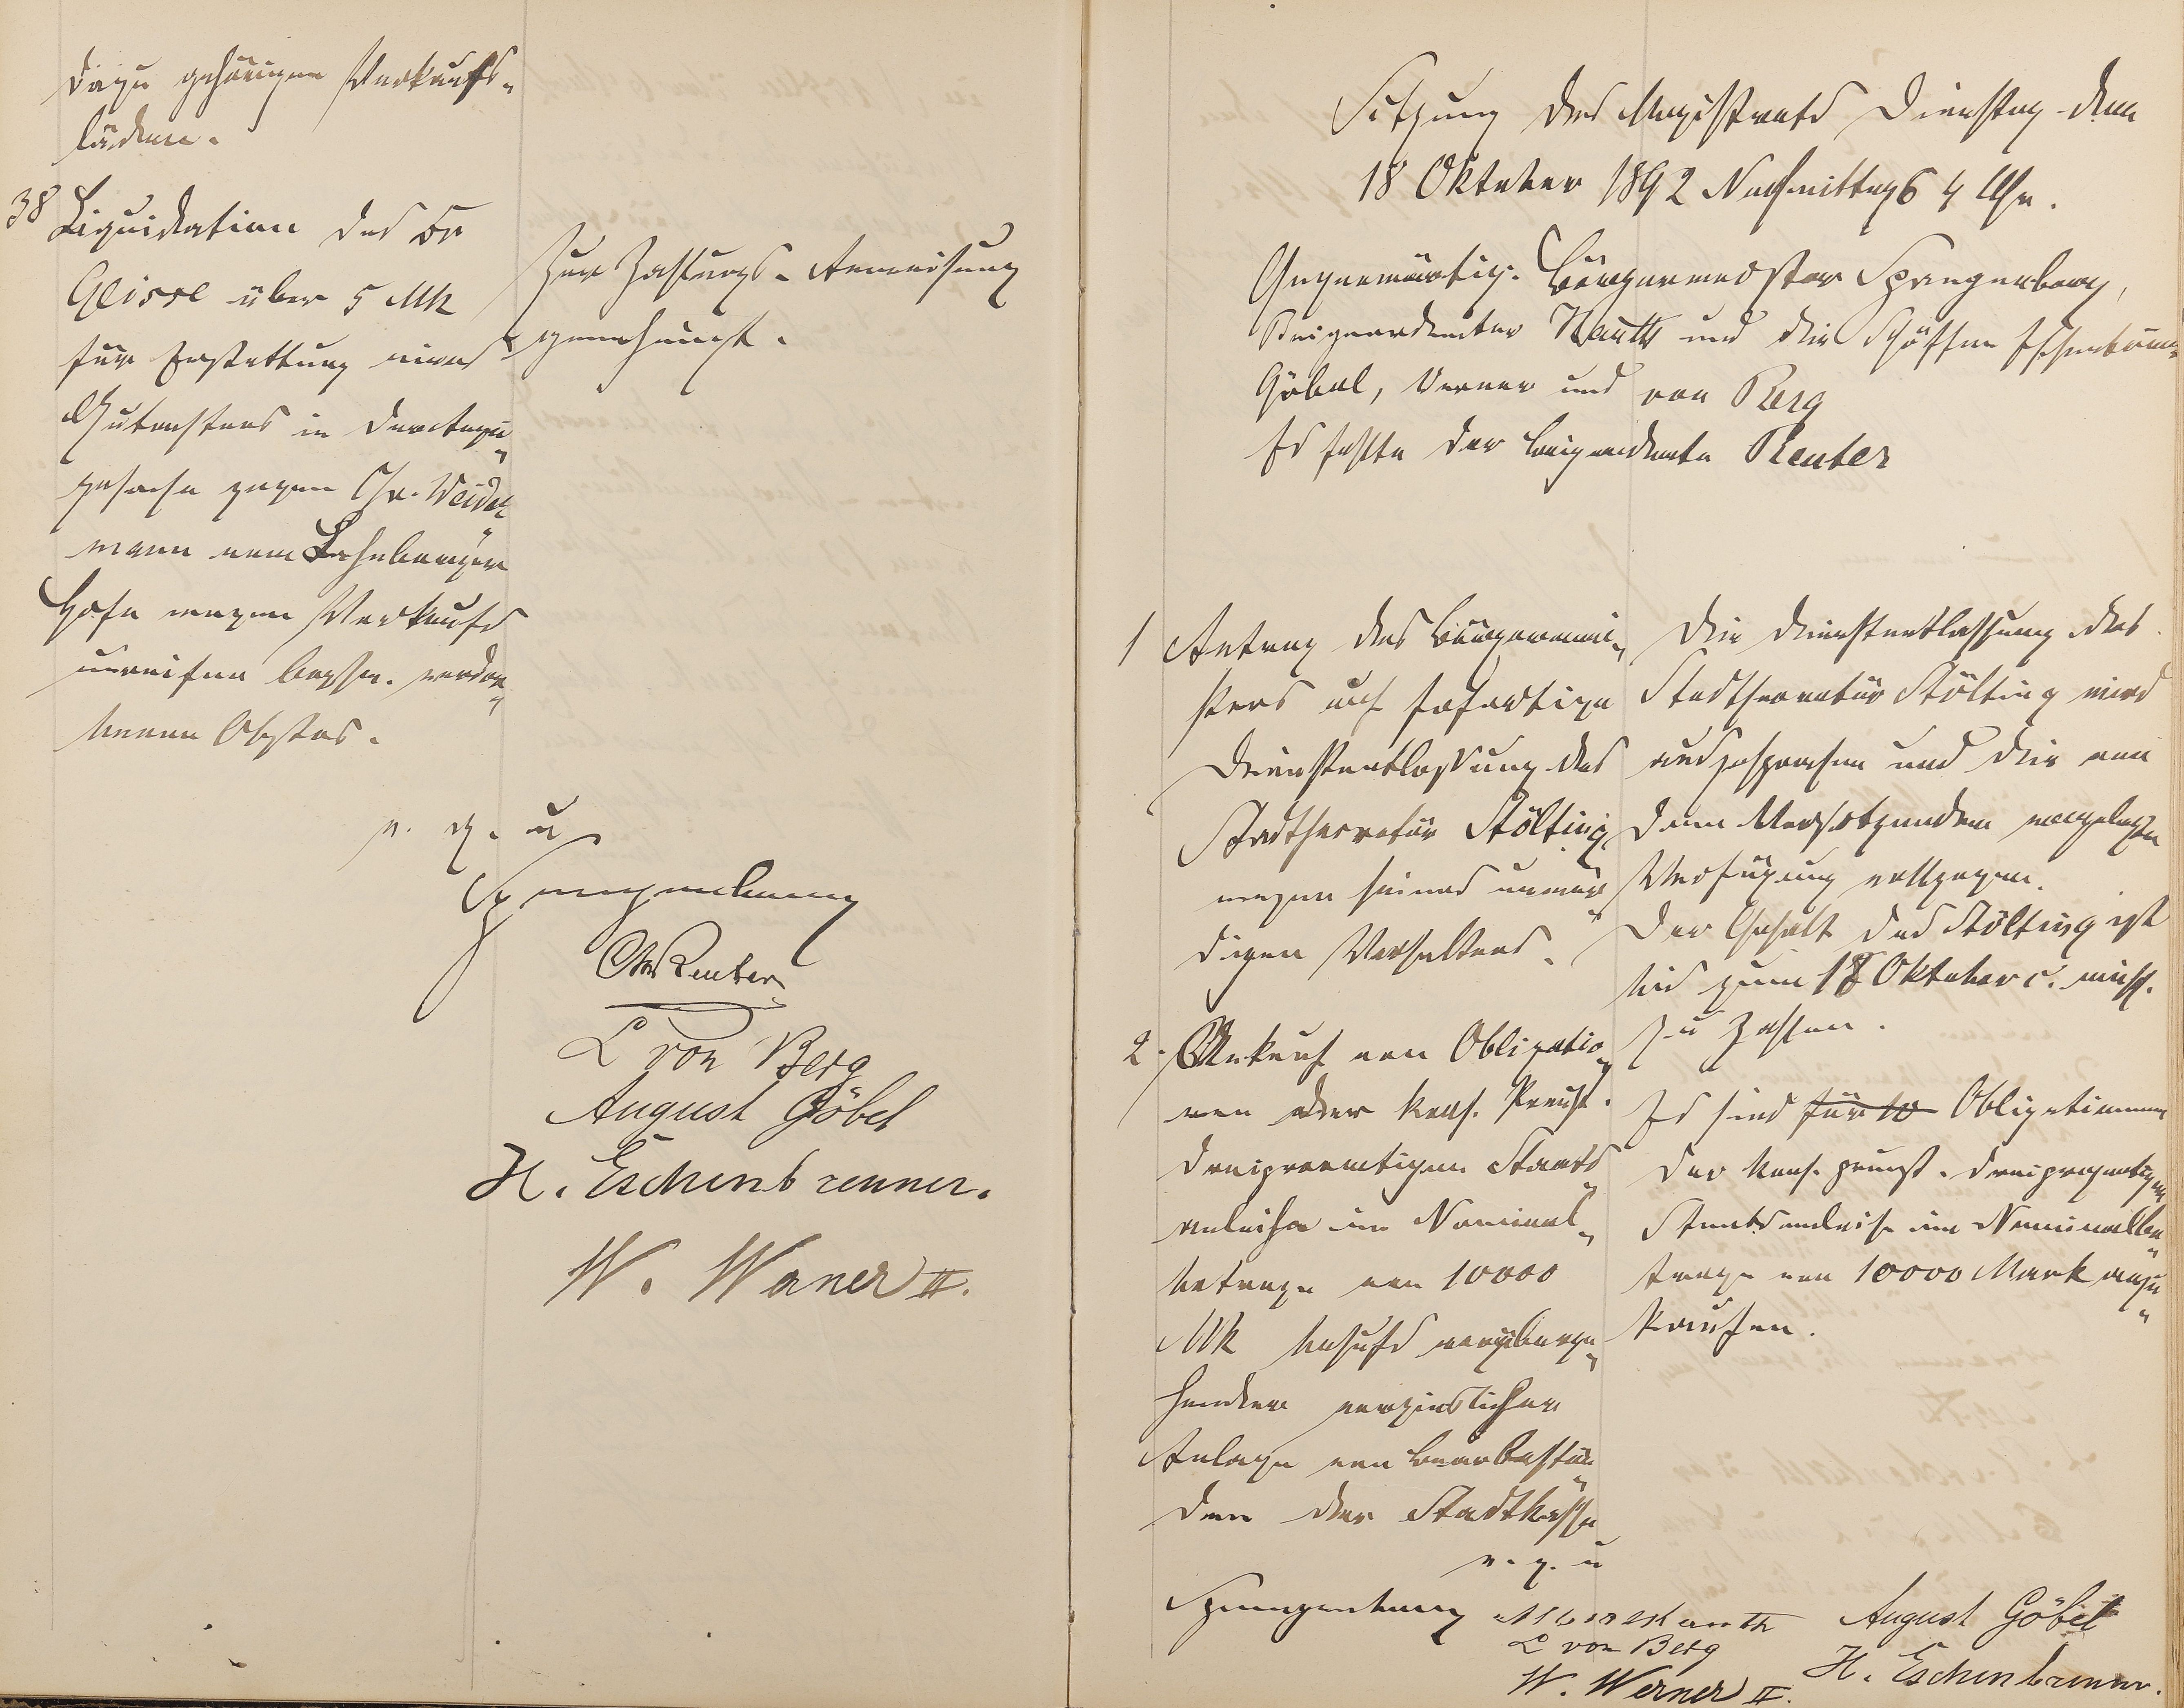 dazu gehörigen Verkaufs-
läden.
38 Liquidation des Dr
Gleisse über 5 Mk
für Erstattung eines
Gutachtens in der
gegen Chr. Weide
mann vom Lahnberger
Hofe wegen Verkaufs
unreifen bezhw. verdor
benen Obstes.
Zur Zahlungs-Anweisung
genehmigt.
v. g. u
Spangenberg
Chr Reuter
L von Berg
August Göbel
H. Eschenbrenner.
W. Werner II.
Sitzung des Magistrats Dienstag den
18 Oktober 1892 Nachmittags 4 Uhr.
Gegenwärtig: Bürgermeister Spangenberg,
Beigeordneter Nauth und die Schöffen Eschenbrenner
Göbel, Werner und von Berg
Es fehlte der Beigeordnete Reuter
1 Antrag des Bürgermei-
sters auf sofortige
Dienstentlassung des
Stadtsecretär Stölting
wegen seines unwür
digen Verhaltens.
Die Dienstentlassung des
Stadtsecretär Stölting wird
ausgesprochen und die von
dem Vorsitzenden vorgelegte
Verfügung vollzogen.
Der Gehalt des Stölting ist
bis zum 18 Oktober c. einschl.
zu zahlen.
2. Ankauf von Obligatio-
nen der kons. Preuß.
dreiprozentigen Staats
anleihe im Nominal-
betrage von 10000
Mk behufs vorüberge-
hender verzinslicher
Anlage von Baarbestän
den der Stadtkasse
Es sind für 10 Obligationen
der kons. preuß. dreiprozentigen
Staatsanleihe im Nominalbe
trage von 10000 Mark anzu
kaufen.
v. g. u
Spangenberg
August Göbel
L von Berg
H. Eschenbrenner.
W. Werner II.